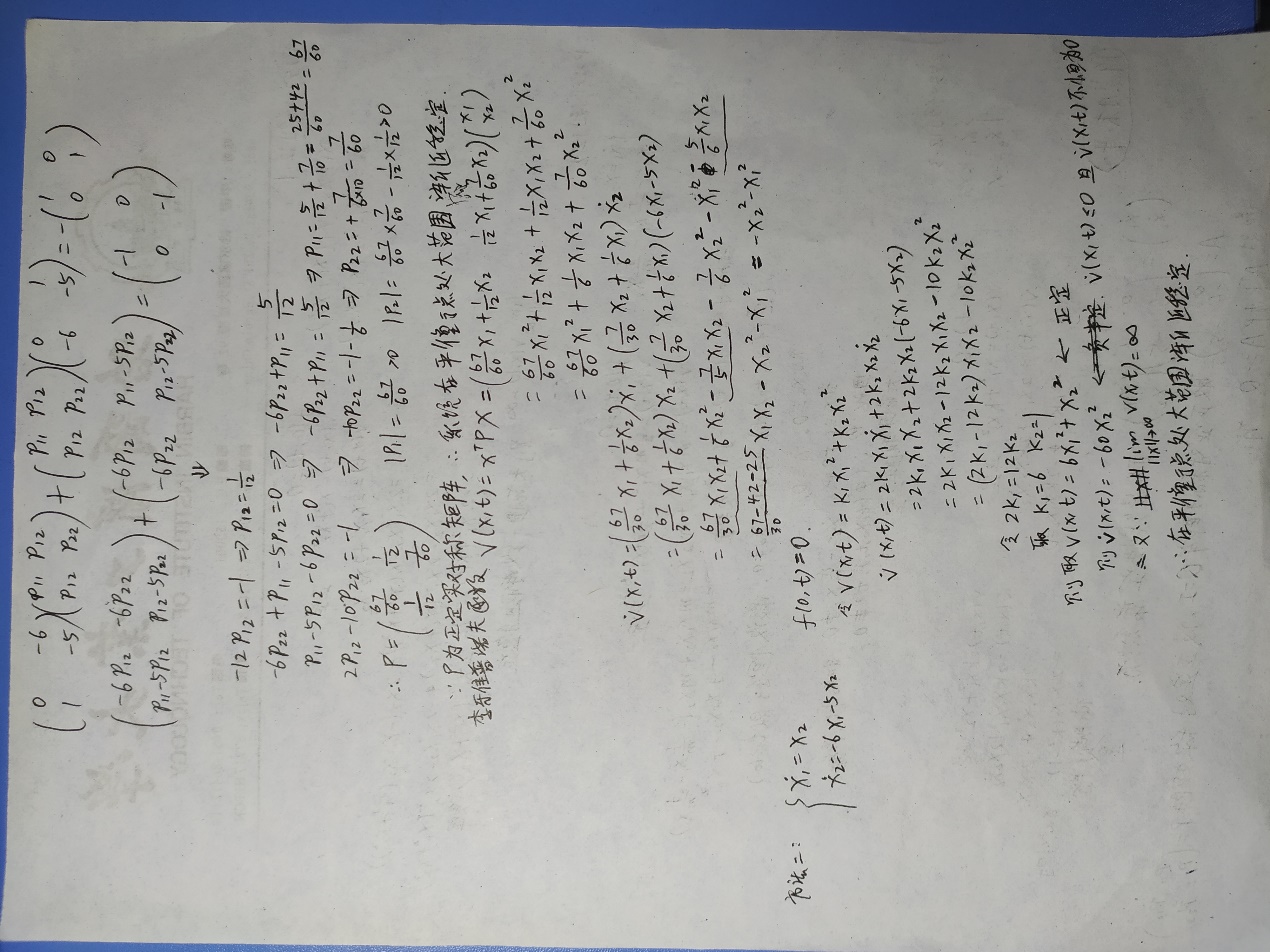 (0 -6; 1 -5)(P11 P12; P12 P22) + (P11 P12; P12 P22)(0 1; -6 -5) = -(1 0; 0 1)
(-6P12 -6P22; P11-5P12 P12-5P22) + (-6P12 P11-5P12; -6P22 P12-5P22) = (-1 0; 0 -1)
⇓
-12P12 = -1 ⇒ P12 = 1/12
-6P22 + P11 - 5P12 = 0 ⇒ -6P22 + P11 = 5/12
P11 - 5P12 - 6P22 = 0 ⇒ -6P22 + P11 = 5/12 ⇒ P11 = 5/12 + 7/10 = (25+42)/60 = 67/60
2P12 - 10P22 = -1 ⇒ -10P22 = -1 - 1/6 ⇒ P22 = + 7/(6×10) = 7/60
∴ P = (67/60 1/12; 1/12 7/60) |P1| = 67/60 > 0 |P2| = 67/60 × 7/60 - 1/12 × 1/12 > 0
∵ P为正定实对称矩阵, ∴ 系统在平衡点处大范围渐近稳定.
李雅普诺夫函数 V(x,t) = xᵀPX = (67/60 x1 + 1/12 x2 1/12 x1 + 7/60 x2)(x1; x2)
= 67/60 x1² + 1/12 x1x2 + 1/12 x1x2 + 7/60 x2²
= 67/60 x1² + 1/6 x1x2 + 7/60 x2².
V̇(x,t) = (67/30 x1 + 1/6 x2)ẋ1 + (7/30 x2 + 1/6 x1)ẋ2
= (67/30 x1 + 1/6 x2)x2 + (7/30 x2 + 1/6 x1)(-6x1 - 5x2)
= 67/30 x1x2 + 1/6 x2² - 7/5 x1x2 - 7/6 x2² - x1² - 5/6 x1x2
= (67-42-25)/30 x1x2 - x2² - x1² = -x2² - x1²
方法二: { ẋ1 = x2 f(0,t) = 0.
ẋ2 = -6x1 - 5x2
令 V(x,t) = K1x1² + K2x2²
V̇(x,t) = 2K1x1ẋ1 + 2K2x2ẋ2
= 2K1x1x2 + 2K2x2(-6x1 - 5x2)
= 2K1x1x2 - 12K2x1x2 - 10K2x2²
= (2K1 - 12K2)x1x2 - 10K2x2²
令 2K1 = 12K2
取 K1 = 6 K2 = 1
则取 V(x,t) = 6x1² + x2² ← 正定
则 V̇(x,t) = -60x2² V̇(x,t) ≤ 0 且 V̇(x,t) 不恒为0
又∵ lim ||x||→∞ V(x,t) = ∞
∴ 在平衡点处大范围渐近稳定.